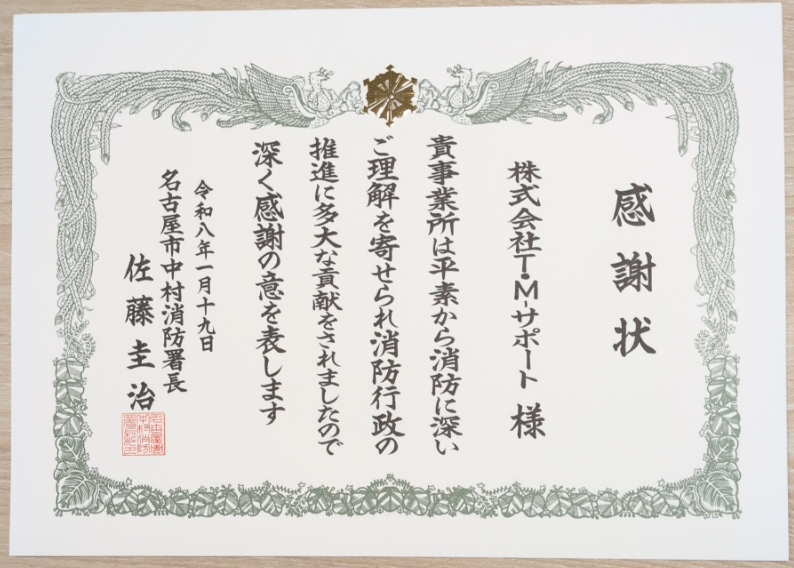 感謝状
株式会社T・M-サポート 様
貴事業所は平素から消防に深い
ご理解を寄せられ消防行政の
推進に多大な貢献をされましたので
深く感謝の意を表します
令和八年一月十九日
名古屋市中村消防署長
佐藤圭治